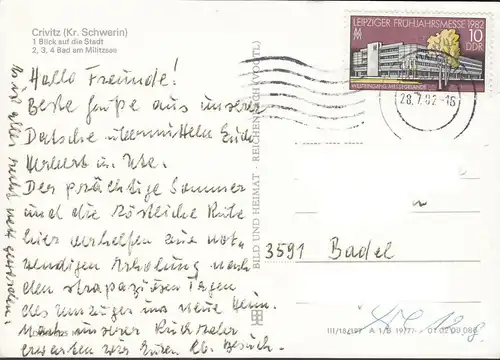 Crivitz (Kr. Schwerin)
1 Blick auf die Stadt
2, 3, 4 Bad am Militzsee
LEIPZIGER FRÜHJAHRSMESSE 1982
10
DDR
WESTEINGANG MESSEGELÄNDE
28.7.82-16
Hallo Freunde!
Beste Grüße aus unserer
Datsche übermitteln Euch
Herbert u. Ute.
Der prächtige Sommer
und die köstliche Ruhe
hier verhelfen zur not-
wendigen Erholung nach
den strapaziösen Tagen
des Umzuges ins neue Heim.
Nach unserer Rückkehr
erwarten wir Euren lb. Besuch.
Es ist alles recht nett geworden!
BILD UND HEIMAT · REICHENBACH (VOGTL)
3591 Badel
III/18/197 A 1/B 19/77 01 02 09 086